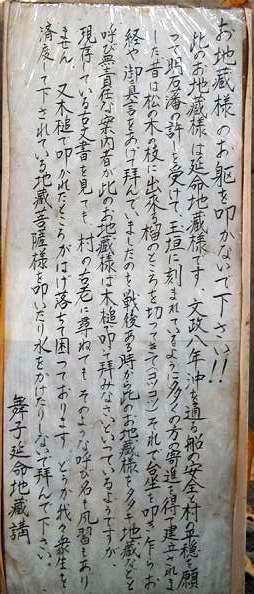 お地蔵様のお躯を叩かないで下さい!!
此のお地蔵様は延命地蔵様です、文政八年沖を通る船の安全と村の平穏を願
って明石藩の許しを受けて、玉垣に刻まれているように多くの方の寄進を得て建立され
した昔は松の木の枝に出来る榴のところを切ってきて(ヨツコツ)それで台座を叩き乍らお
経や御真言をあげ拝んでいましたのを戦後ある時から此のお地蔵様をタタキ地蔵などと
呼び無責任な案内者が此のお地蔵様は木槌で叩て拝みなさいといっているようですが、
現存している古文書を見ても、村の古老に尋ねてもそのような呼び名も風習もあり
ません 又木槌で叩かれたところがはげ落ちて困っております どうか我々衆生を
済度して下されている地蔵菩薩様を叩いたり水をかけたりしないで拝んで下さい。
舞子延命地蔵講